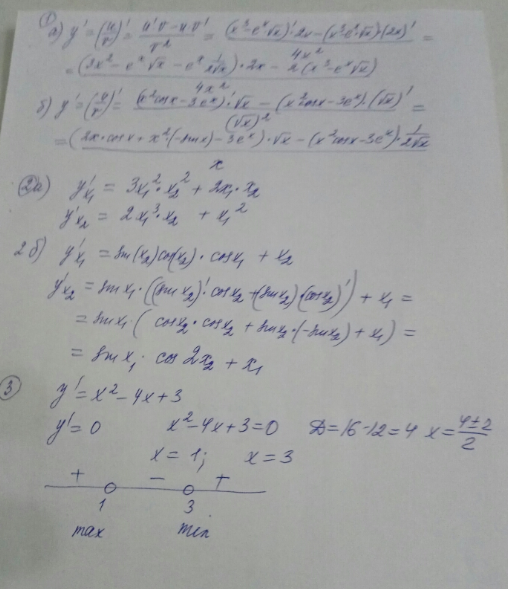 ① а) y' = (u/v)' = (u'v - uv')/v² = ((x³ - eˣ√x)'·2x - (x³ - eˣ√x)(2x)')/4x² =
= ((3x² - eˣ√x - eˣ 1/(2√x))·2x - 2(x³ - eˣ√x))/4x²
б) y' = (u/v)' = ((x²cosx - 3eˣ)'·√x - (x²cosx - 3eˣ)·(√x)')/(√x)² =
= ((2x·cosx + x²·(-sinx) - 3eˣ)·√x - (x²cosx - 3eˣ)·1/(2√x))/x
②а) y'x₁ = 3x₁²·x₂² + 2x₁·x₂
y'x₂ = 2x₁³·x₂ + x₁²
2б) y'x₁ = sin(x₂)cos(x₂)·cosx₁ + x₂
y'x₂ = sinx₁·((sinx₂)'·cosx₂ + (sinx₂)·(cosx₂)') + x₁ =
= sinx₁·(cosx₂·cosx₂ + sinx₂·(-sinx₂) + x₁) =
= sinx₁·cos2x₂ + x₁
③ y' = x² - 4x + 3
y' = 0 x² - 4x + 3 = 0 D = 16 - 12 = 4 x = (4 ± 2)/2
x = 1; x = 3
+ - +
1 3
max min